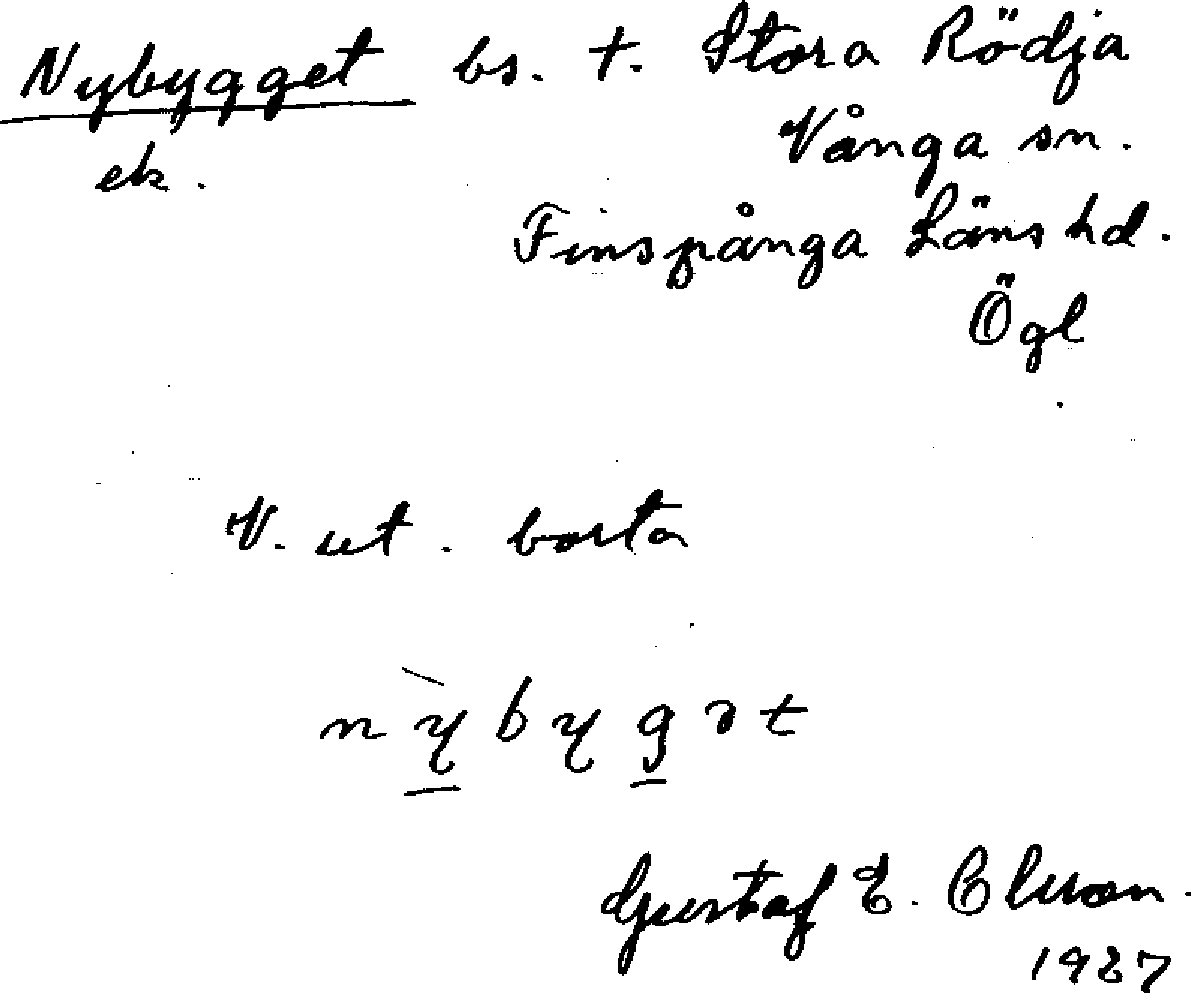 Nybygget bs. t. Stora Rödja
ek. Vånga sn.
Finspånga Läns hd.
Ögl
V. ut. borta
nỳbygət
Gustaf E.
1937